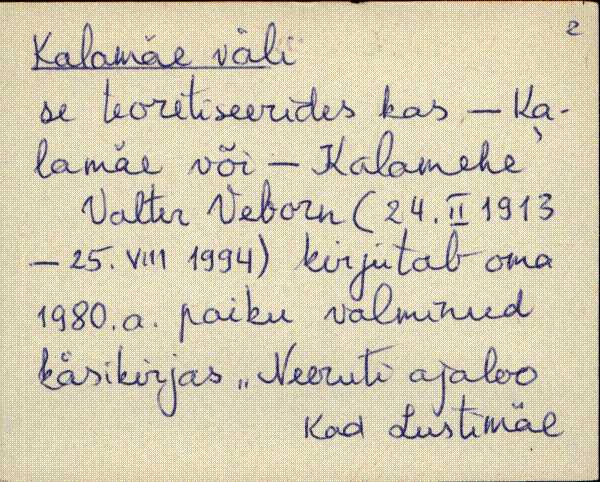 2
Kalamäe väli
se teoretiseerides kas – Ka-
lamäe või – Kalamehe
Valter Veborn (24. II 1913
– 25. VIII 1994) kirjutab oma
1980. a. paiku valminud
käsikirjas „Neeruti ajaloo
Kad Lustimäe